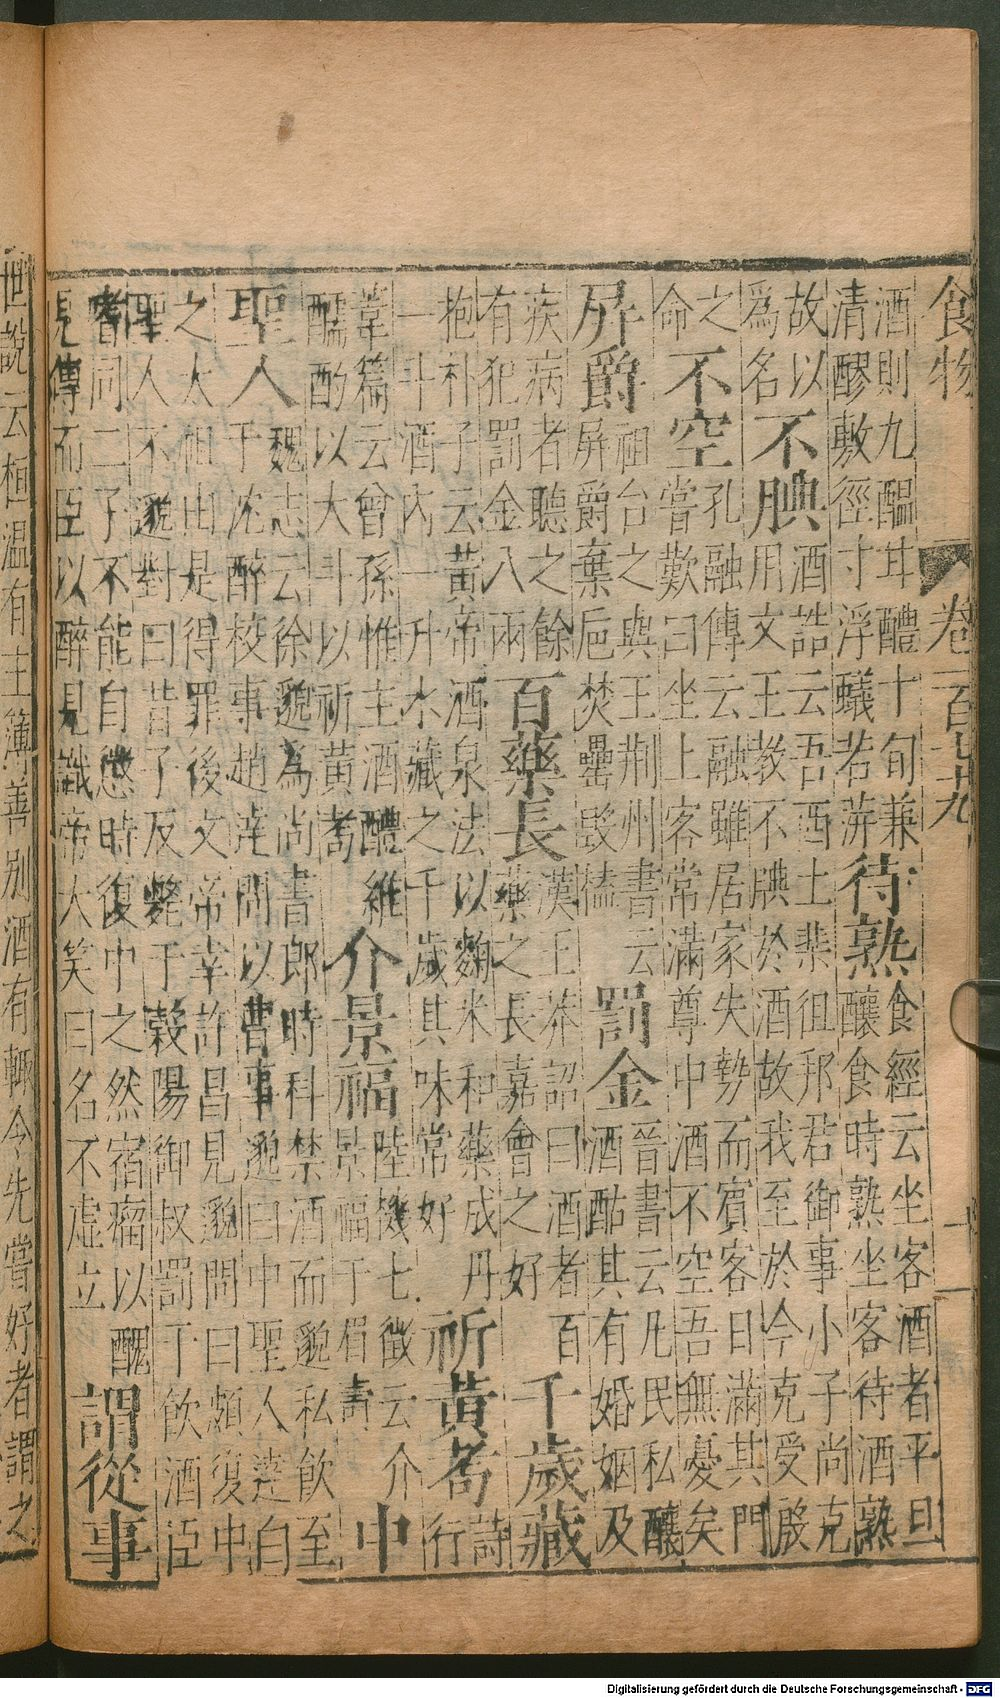 食物　卷一百七十九　十一
酒則九醞耳醴十旬兼
清醪敷徑寸浮蟻若蓱
待熟
食經云坐客酒者平旦
釀食時熟坐客待酒熟
故以
為名
不腆
酒誥云吾西土棐徂邦君御事小子尚克
用文王教不腆於酒故我至於今克受殷
之
命
不空
孔融傳云融雖居家失勢而賓客日滿其門
嘗歎曰坐上客常滿尊中酒不空吾無憂矣
屏爵
祖台之與王荆州書云
屏爵棄巵焚罍毀榼
罰金
晉書云凡民私釀
酒酤其有婚姻及
疾病者聽之餘
有犯罰金八兩
百藥長
漢王莽詔曰酒者百
藥之長嘉會之好
千歲藏
抱朴子云黃帝酒泉法以麴米和藥成丹
一斗酒內一升水藏之千歲其味常好
祈黃耉
詩
行
葦篇云曾孫惟主酒醴維
醹酌以大斗以祈黃耉
介景福
陸機七徵云介
景福于眉壽
中
聖人
魏志云徐邈為尚書郎時科禁酒而邈私飲至
于沈醉校事趙達問以曹事邈曰中聖人達白
之太祖由是得罪後文帝幸許昌見邈問曰頗復中
聖人不邈對曰昔子反斃于穀陽御叔罰于飲酒臣
耆同二子不能自懲時復中之然宿瘤以醜
見傳而臣以醉見識帝大笑曰名不虛立
謂從事
世說云桓温有主簿善別酒有輙令先嘗好者謂之
Digitalisierung gefördert durch die Deutsche Forschungsgemeinschaft - DFG